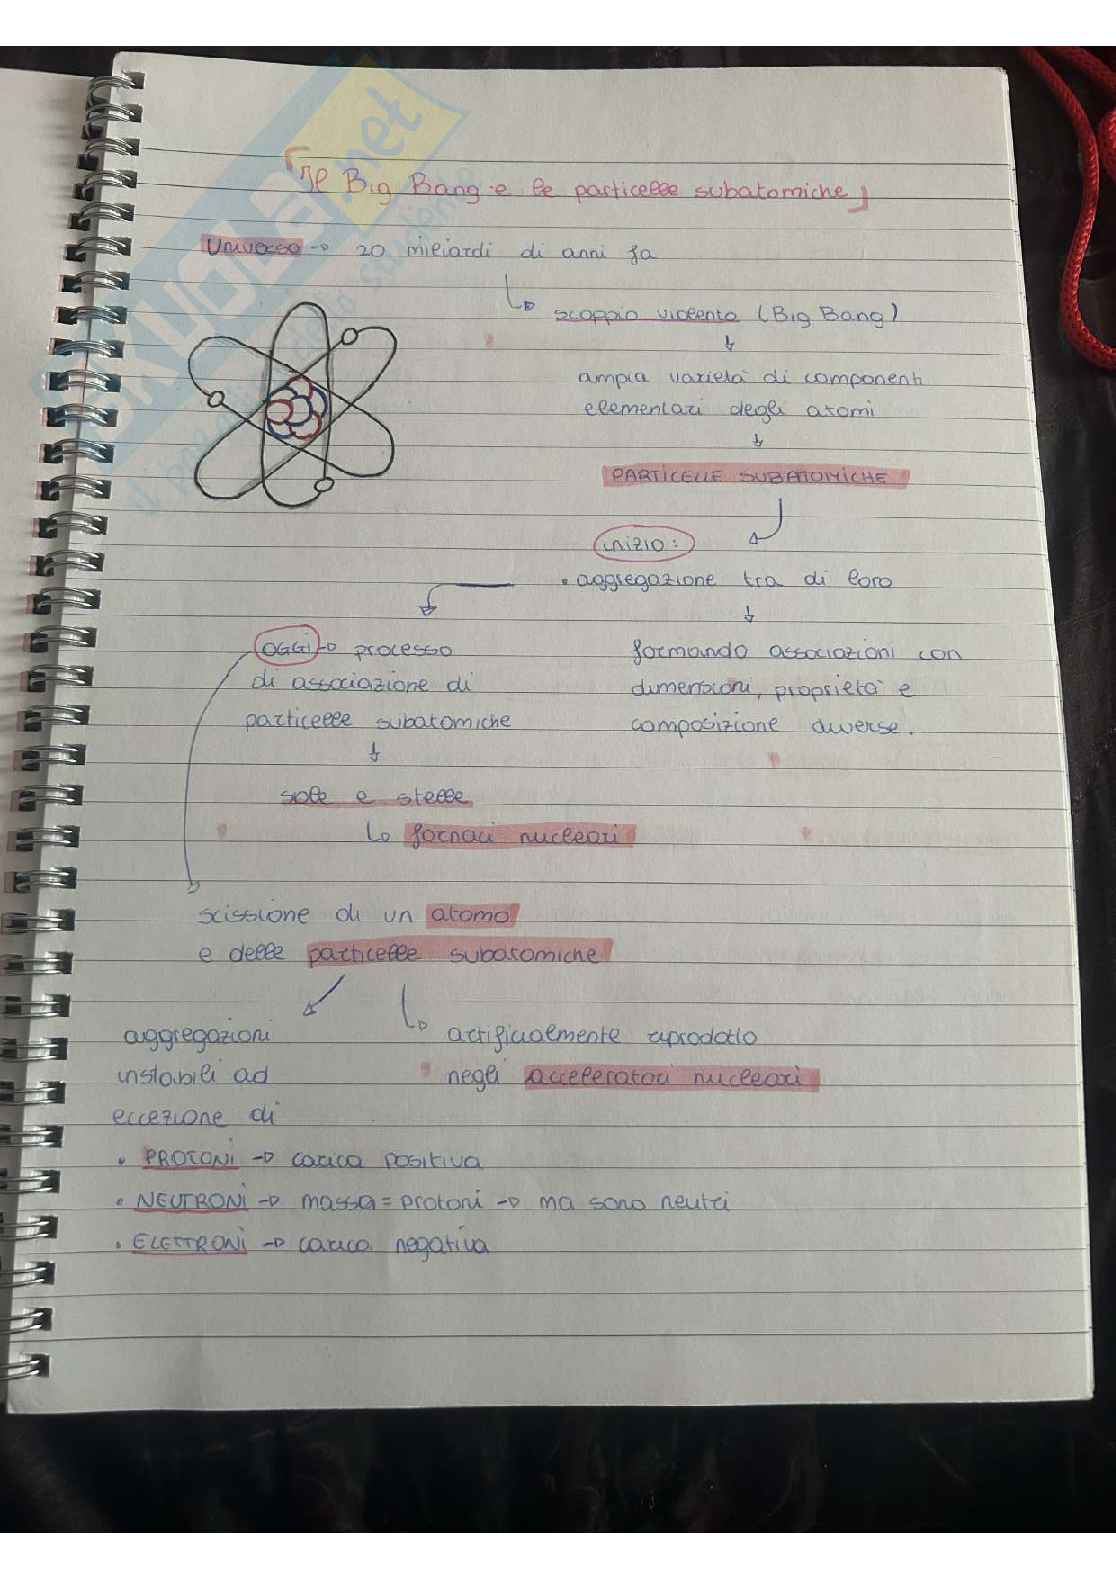 Il Big Bang e le particelle subatomiche
Universo → 20 miliardi di anni fa
scoppio violento (Big Bang)
ampia varietà di componenti
elementari degli atomi
PARTICELLE SUBATOMICHE
inizio:
• aggregazione tra di loro
formando associazioni con
dimensioni, proprietà e
composizione diverse.
OGGI → processo
di associazione di
particelle subatomiche
sole e stelle
fornaci nucleari
scissione di un atomo
e delle particelle subatomiche
artificialmente riprodotto
negli acceleratori nucleari
aggregazioni
instabili ad
eccezione di
• PROTONI → carica positiva
• NEUTRONI → massa = protoni → ma sono neutri
• ELETTRONI → carica negativa
SKUOLA.net